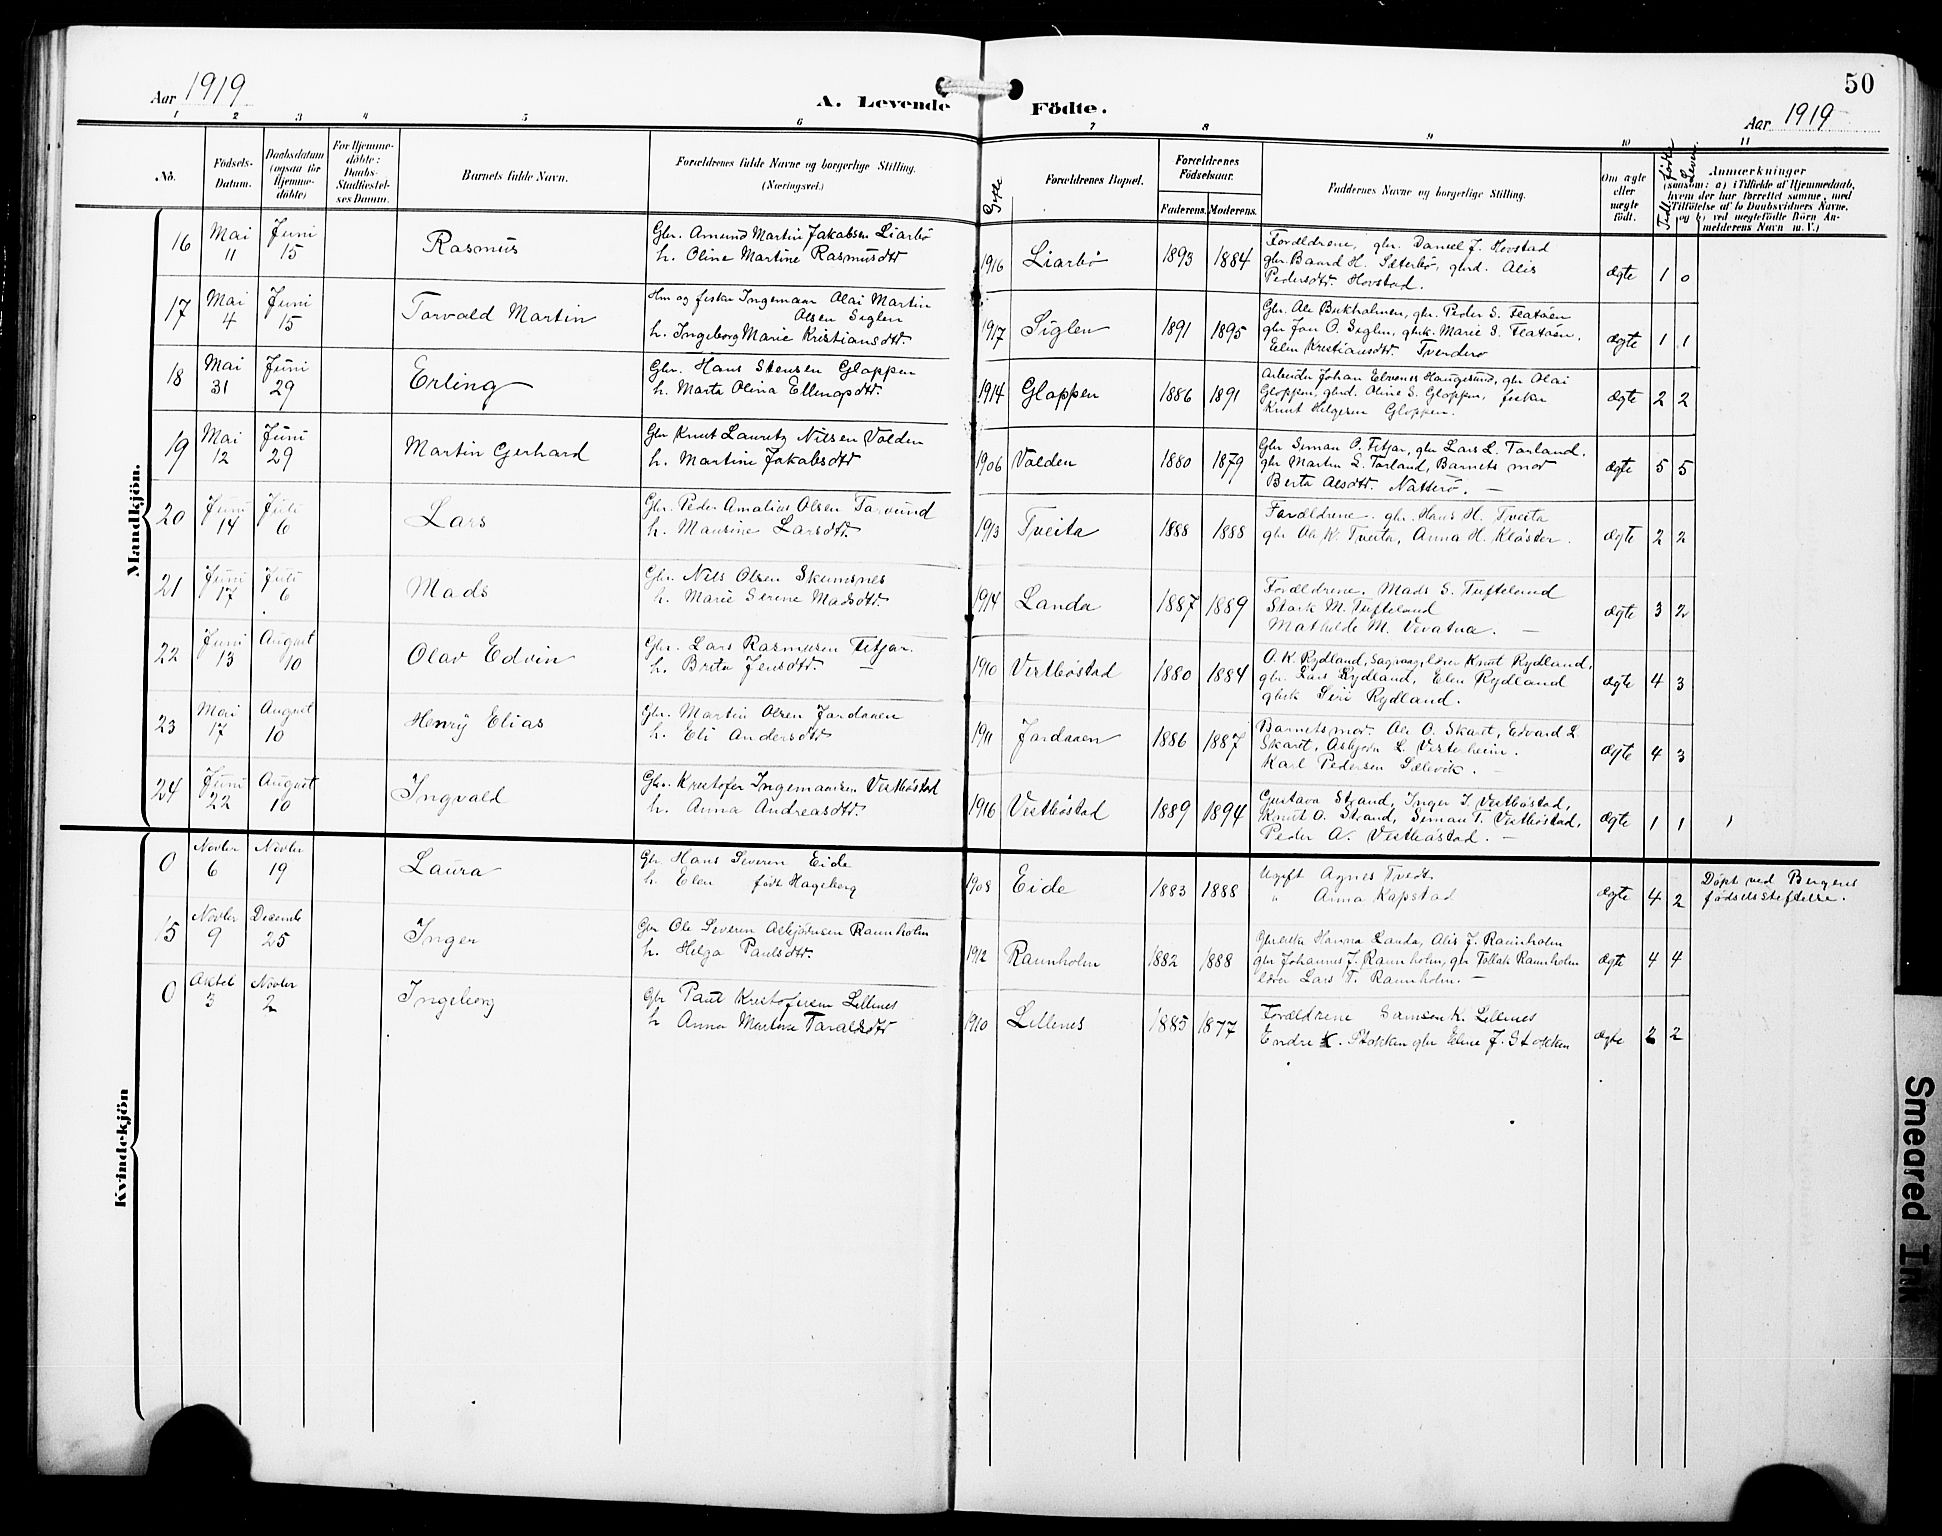 Aar 1919
A. Levende Födte.
50
Aar 1919
1 2 3 4 5 6 7 8 9 10 11
No.
Födsels-
Datum.
Daabsdatum
(ogsaa for
Hjemme-
döbte)
For Hjemme-
döbte:
Daabs-
Stadfæstel-
ses Datum.
Barnets fulde Navn.
Forældrenes fulde Navne og borgerlige Stilling.
(Næringsvei.)
Gifte
Forældrenes Bopæl.
Forældrenes
Födselsaar.
Faderens. Moderens.
Faddernes Navne og borgerlige Stilling.
Om ægte
eller
uægte
födt.
Till. födte
Leven.
Anmærkninger
(saasom: a) i Tilfælde af Hjemmedaab,
hvem der har forrettet samme, med
Tilföielse af to Daabsvidners Navne,
og b) ved uægtefödte Börn An-
melderens Navn m. V.)
Mandkjön.
16 Mai 11 Juni 15 Rasmus
Gbr. Amund Martin Jakobsen Liarbö
h. Oline Martine Rasmusdtr
1916 Liarbö 1893 1884
Forældrene, gbr. Daniel J. Hovstad
gbr. Baard H. Sæterbö, gbrd. Alis
Pedersdtr. Hovstad.
ægte 1 0
17 Mai 4 Juni 15 Torvald Martin
Hm og fisker Ingemaar Olai Martin
Olsen Siglen
h. Ingeborg Marie Kristiansdtr.
1917 Siglen 1891 1895
Gbr. Ole Birkholmen, gbr. Peder S. Flatöen
gbr Jon O. Siglen, gbrk. Marie S. Flatöen,
Elen Kristiansdtr. Tverderö
ægte 1 1
18 Mai 31 Juni 29 Erling
Gbr. Hans Stensen Gloppen
h. Marta Olina Ellingsdtr.
1914 Gloppen 1886 1891
Arbeider Johan Elvenes Haugesund, gbr Olai
Gloppen, gbrd. Oline S. Gloppen, fisker
Knut Helgesen Gloppen.
ægte 2 2
19 Mai 12 Juni 29 Martin Gerhard
Gbr Knut Lauritz Nilsen Valden
h. Martine Jakobsdtr
1906 Valden 1880 1879
Gbr Simon O. Fitjar, gbr Lars L. Tarland,
gbr Martin L. Tarland, Barnets mor
Berta Olsdtr. Natterö. —
ægte 5 5
20 Juni 14 Juli 6 Lars
Gbr. Peder Amalius Olsen Tarvund
h. Maurine Larsdtr.
1913 Tveita 1888 1888
Forældrene. gbr. Hans H. Tveita
gbr Ole K. Tveita, Anna H. Kloster.
ægte 2 2
21 Juni 17 Juli 6 Mads
Gbr. Nils Olsen Skumsnes
h. Marie Serene Madsdtr.
1914 Landa 1887 1889
Forældrene. Mads S. Tufteland
Stark M. Tufteland
Mathilde M. Vevatna. —
ægte 3 2
22 Juni 13 August 10 Olav Edvin
Gbr. Lars Rasmusen Fitjar.
h. Brita Jensdtr. —
1910 Vestböstad 1880 1884
O. K. Rydland, Sagvaag, lærer Knut Rydland,
gbr. Lars Rydland, Elen Rydland
gbrk Siri Rydland.
ægte 4 3
23 Mai 17 August 10 Henry Elias
Gbr. Martin Olsen Jordaaen
h. Eli Andersdtr
1911 Jordaaen 1886 1887
Barnets mor. Ole O. Skaret, Edvard L
Skaret, Asbjorn L. Vesterheim.
Karl Pedersen Sælevik. -
ægte 4 3
24 Juni 22 August 10 Ingvald
Gbr. Kristofer Ingemaarsen Vestböstad
h. Anna Andreasdtr.
1916 Vestböstad 1889 1894
Gustava Strand, Inger I. Vestböstad,
Knut O. Strand, Simon T. Vestböstad,
Peder A. Vestböstad. —
ægte 1 1
Kvindekjön
0 Novbr 6 Novbr 19 Laura
Gbr. Hans Severin Eide
h. Elen födt Hageberg
1908 Eide 1883 1888
Ugift Agnes Tvedt.
" Anna Kapstad
ægte 4 2
Döpt ved Bergens
födselsstiftelse.
15 Novbr 9 Decembr 25 Inger
Gbr Ole Severin Asbjörnsen Raunholm
h. Helga Paulsdtr.
1912 Raunholm 1882 1888
Gbrenke Hanna Landa, Alis J. Raunholm
gbr Johannes J. Raunholm, gbr Tollak Raunholm
lærer Lars T. Raunholm. —
ægte 4 4
0 Oktob 3 Novbr 2 Ingeborg
Gbr Paul Kristofersen Lillenes
h Anna Martine Taraldsdtr
1910 Lillenes 1885 1877
Forældrene Samson K. Lillenes
Endre K. Stokken gbr Eline J. Stokken
ægte 2 2
Smeared Ink